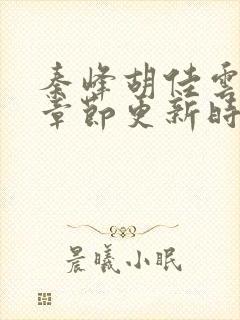 秦峰胡佳雲
章節更新時
晨曦小眠